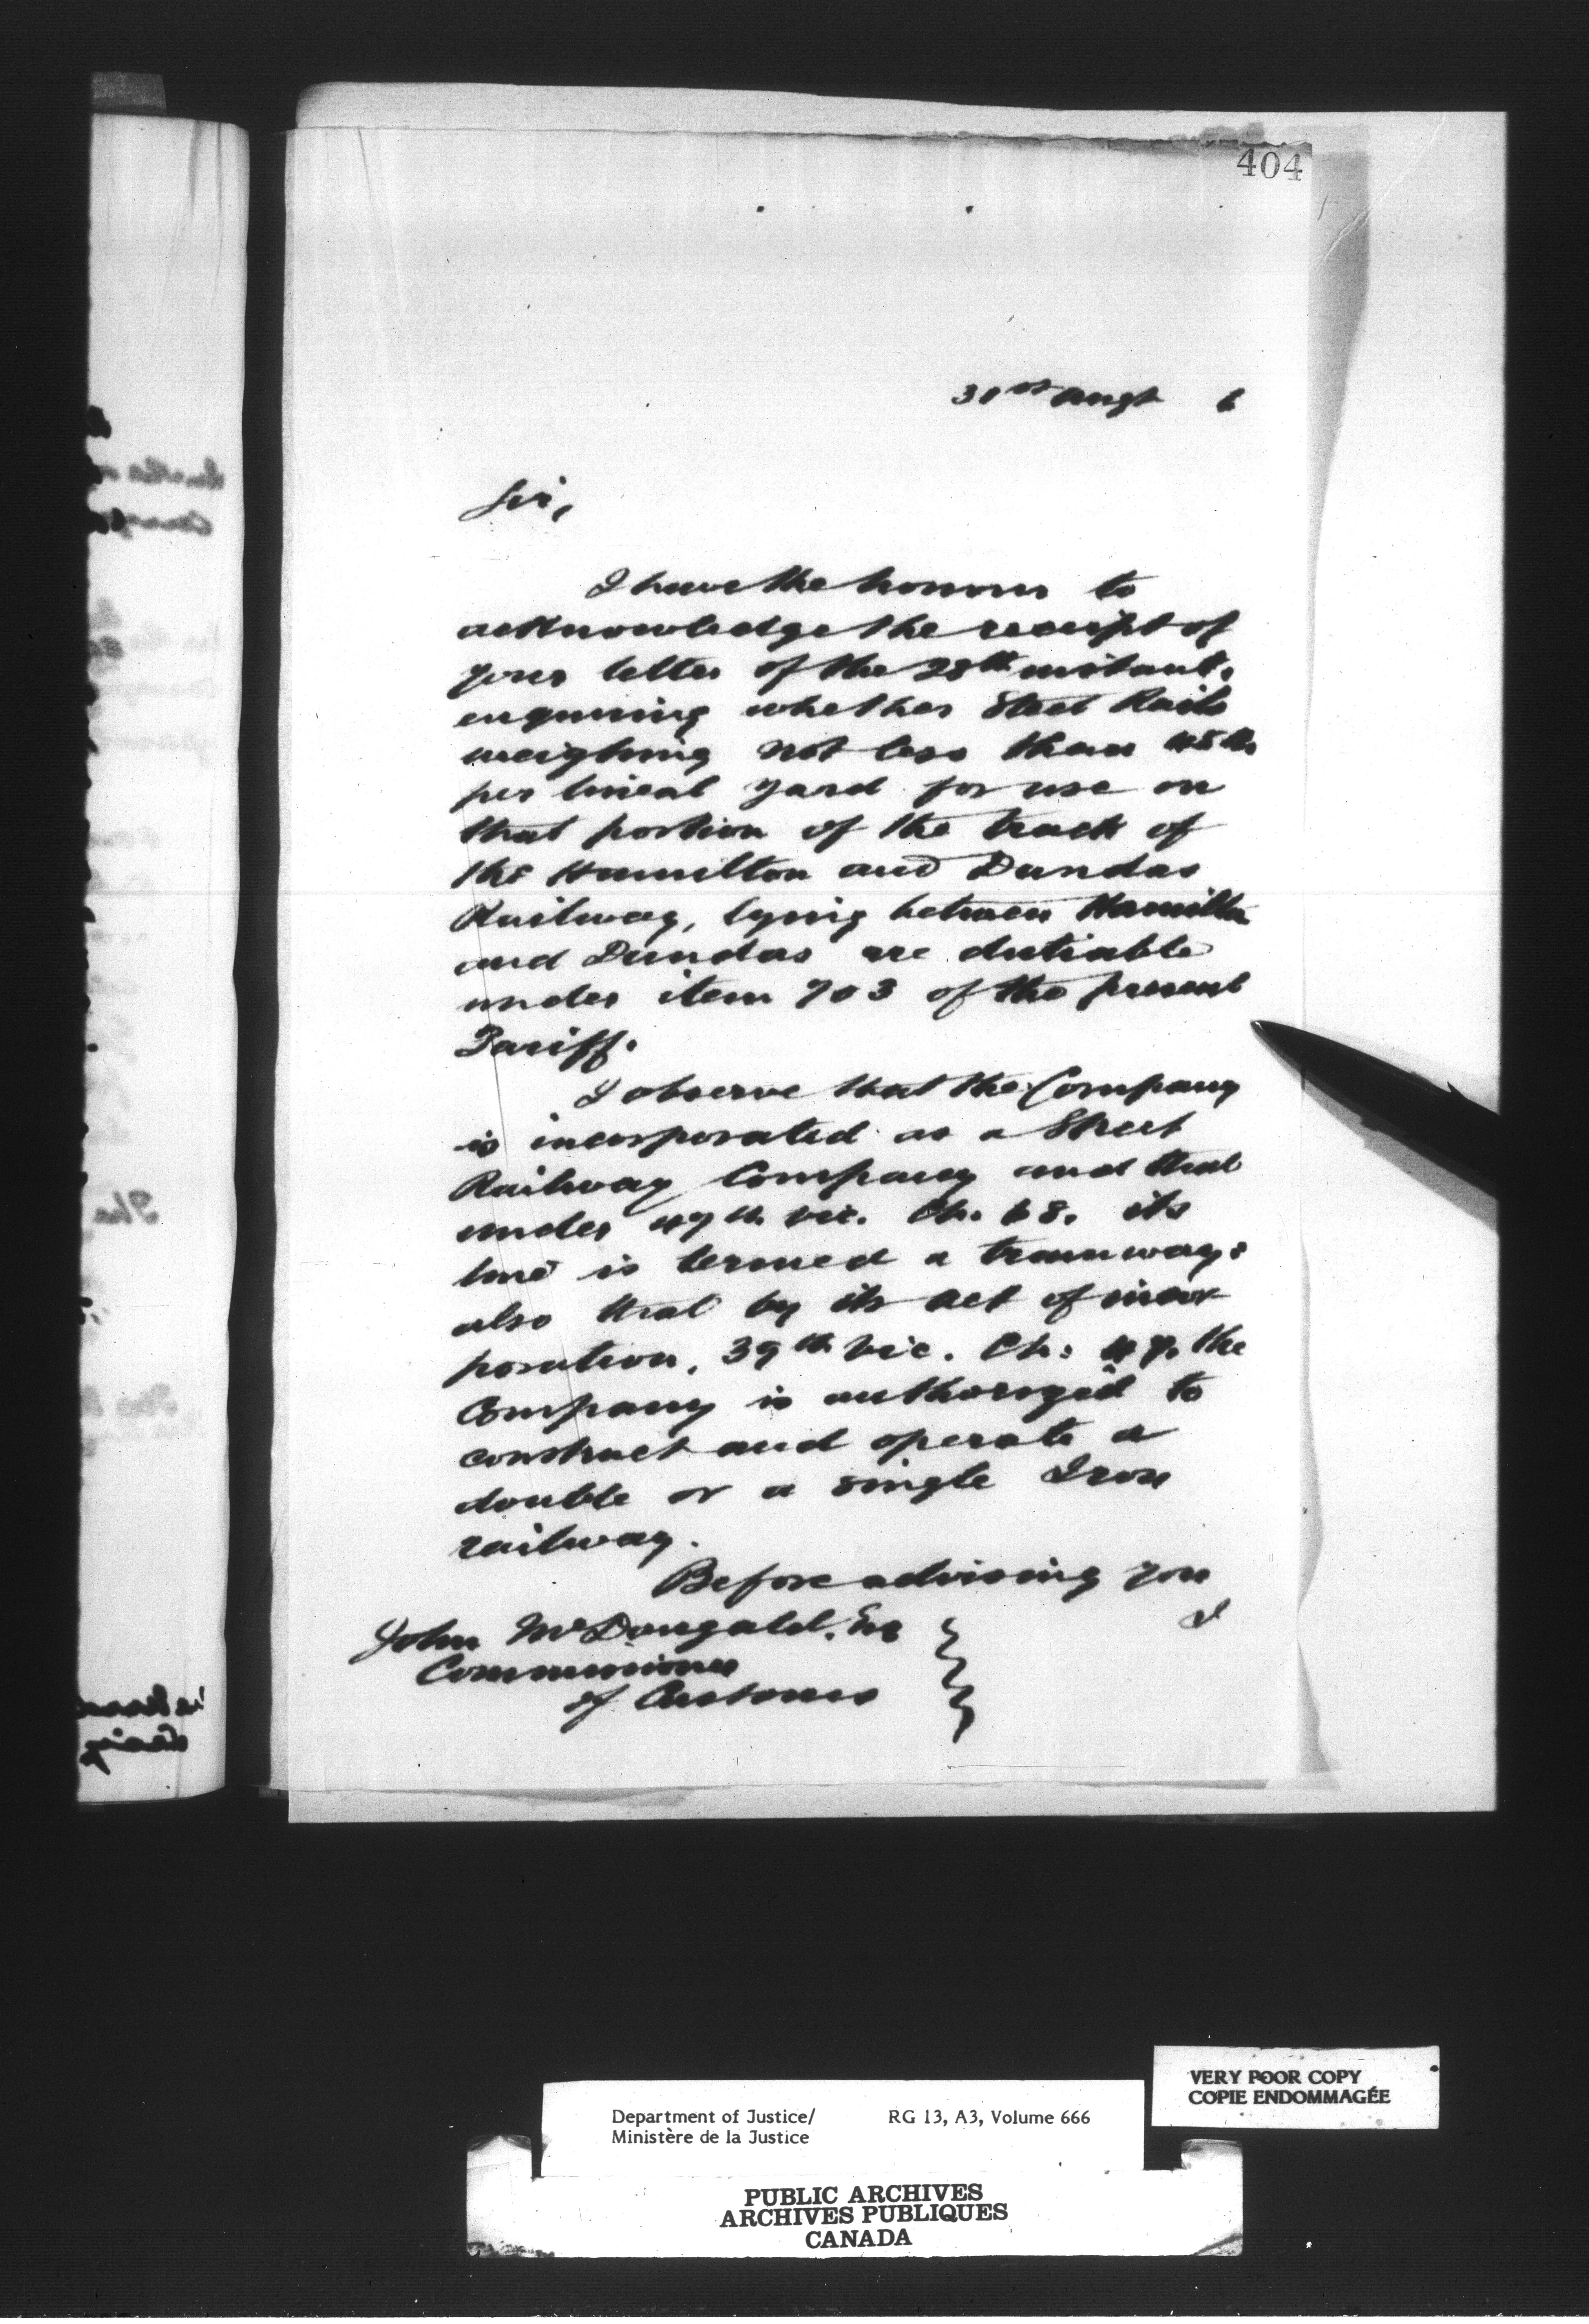 404
31st Augt 6
Sir,
I have the honour to
acknowledge the receipt of
your letter of the 28th instant,
enquiring whether Steel Rails
weighing not less than 45 lbs
per lineal yard for use on
that portion of the track of
the Hamilton and Dundas
Railway, lying between Hamilton
and Dundas are dutiable
under item 703 of the present
Tariff.
I observe that the Company
is incorporated as a Street
Railway Company and that
under 47th Vic. Ch. 68. its
line is termed a tramway:
also that by its act of incor
poration, 39th Vic. Ch: 47. the
Company is authorized to
construct and operate a
double or a single Iron
railway.
Before advising you
I
John McDougald, Esq
Commissioner
of Customs
VERY POOR COPY
COPIE ENDOMMAGÉE
Department of Justice/ RG 13, A3, Volume 666
Ministère de la Justice
PUBLIC ARCHIVES
ARCHIVES PUBLIQUES
CANADA